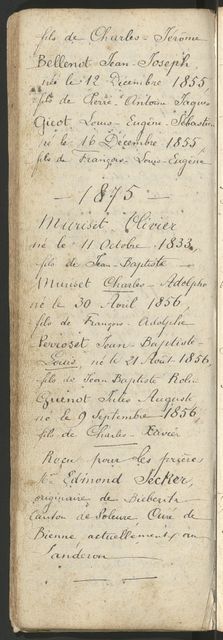 fils de Charles-Jérome
Bellenot Jean-Joseph
né le 12 Décembre 1855
fils de Pierre-Antoine Jaques
Gicot Louis-Eugène-Sébastien
né le 16 Décembre 1855
fils de François-Louis-Eugène
- 1875 -
Muriset Olivier
né le 11 Octobre 1833
fils de Jean-Baptiste
Muriset Charles-Adolphe
né le 30 Avril 1856
fils de François-Adolphe
Perroset Jean Baptiste-
Louis, né le 21 Août 1856
fils de Jean Baptiste
Quenot Jules Auguste
né le 9 Septembre 1856
fils de Charles-Xavier
Reçu pour les prières
Edmond Jecker,
originaire de
Canton de Soleure Curé de
Bienne actuellement au
Landeron